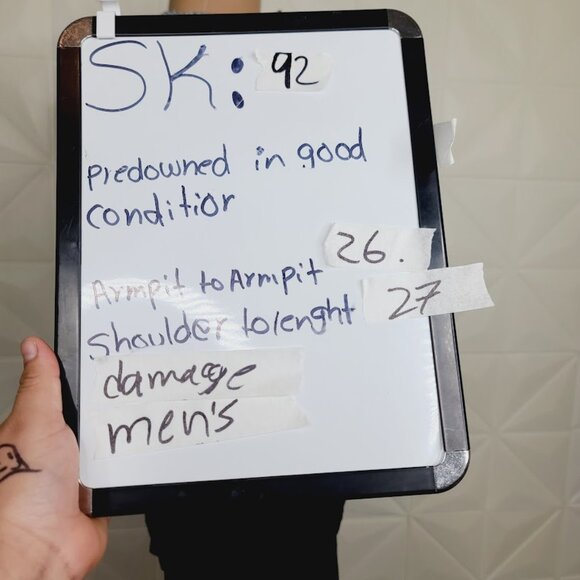 SK: 92
predowned in good
conditior
Armpit to Armpit 26.
shoulder to lenght 27
damage
men's